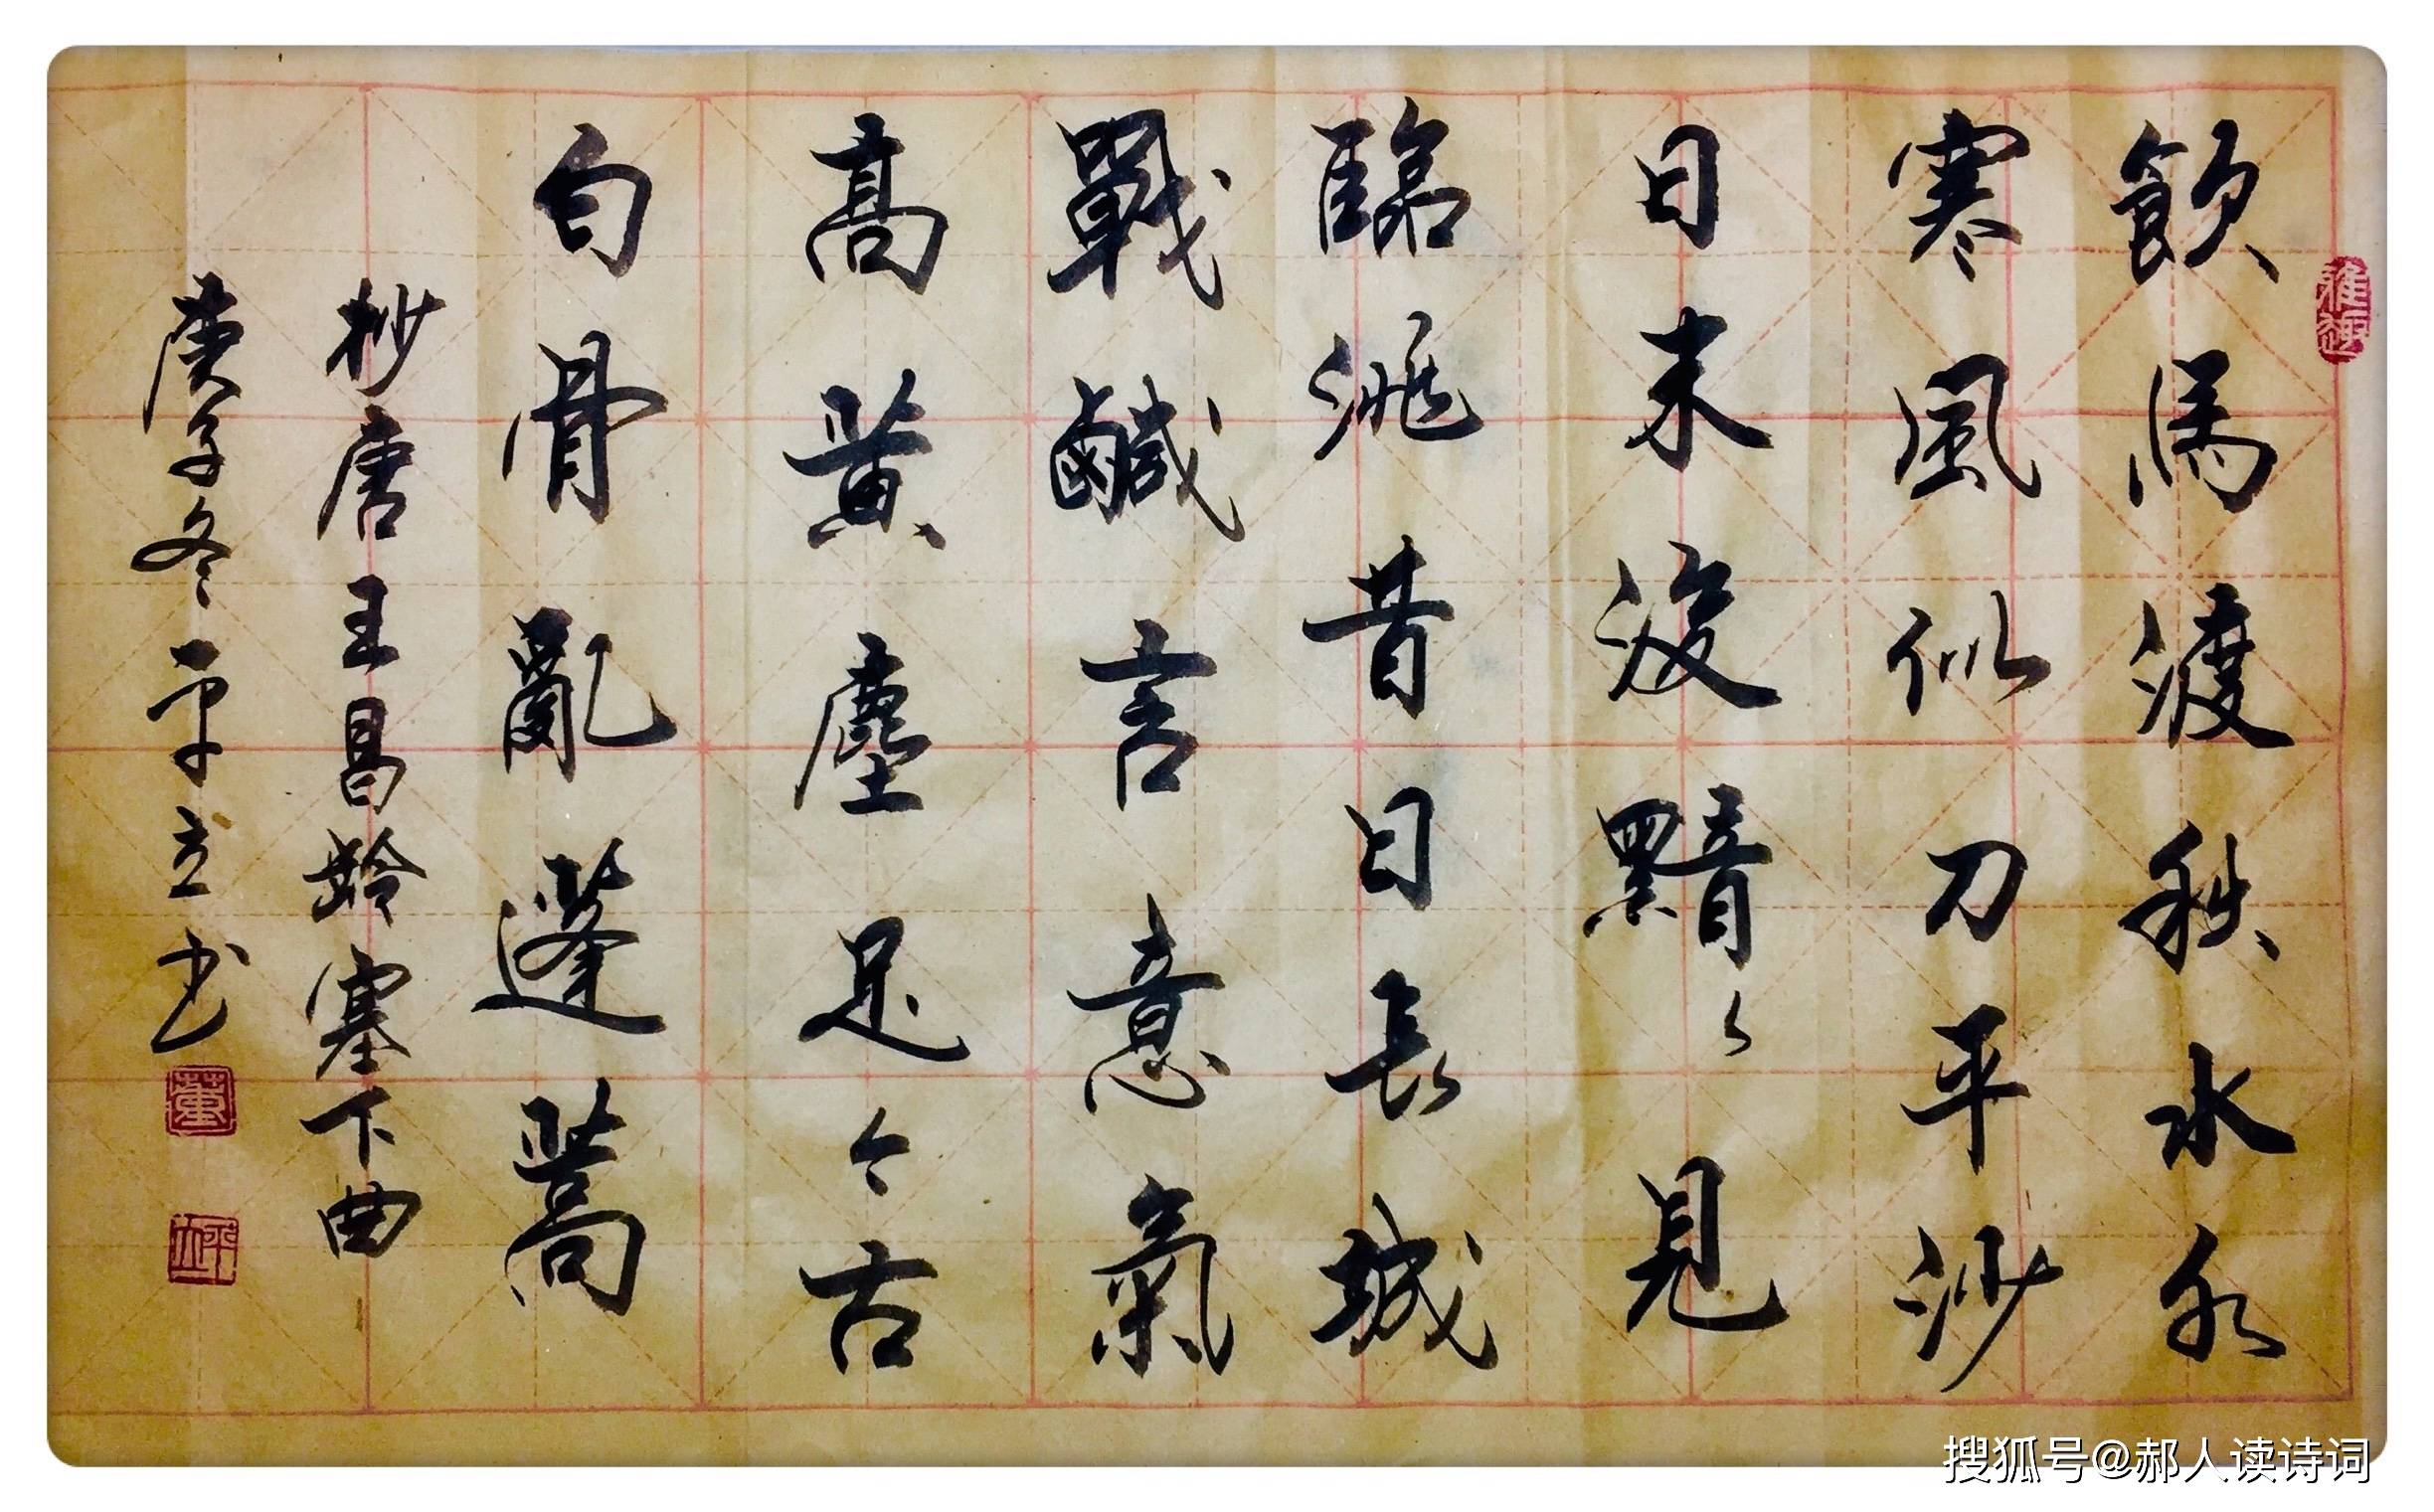 飲馬渡秋水水
寒風似刀平沙
日未没黯々見
臨洮昔日長城
戰鹹言意氣
高黄塵足今古
白骨亂蓬蒿
抄唐王昌齡塞下曲
庚子冬平立书
雅趣
董
搜狐号@郝人读诗词